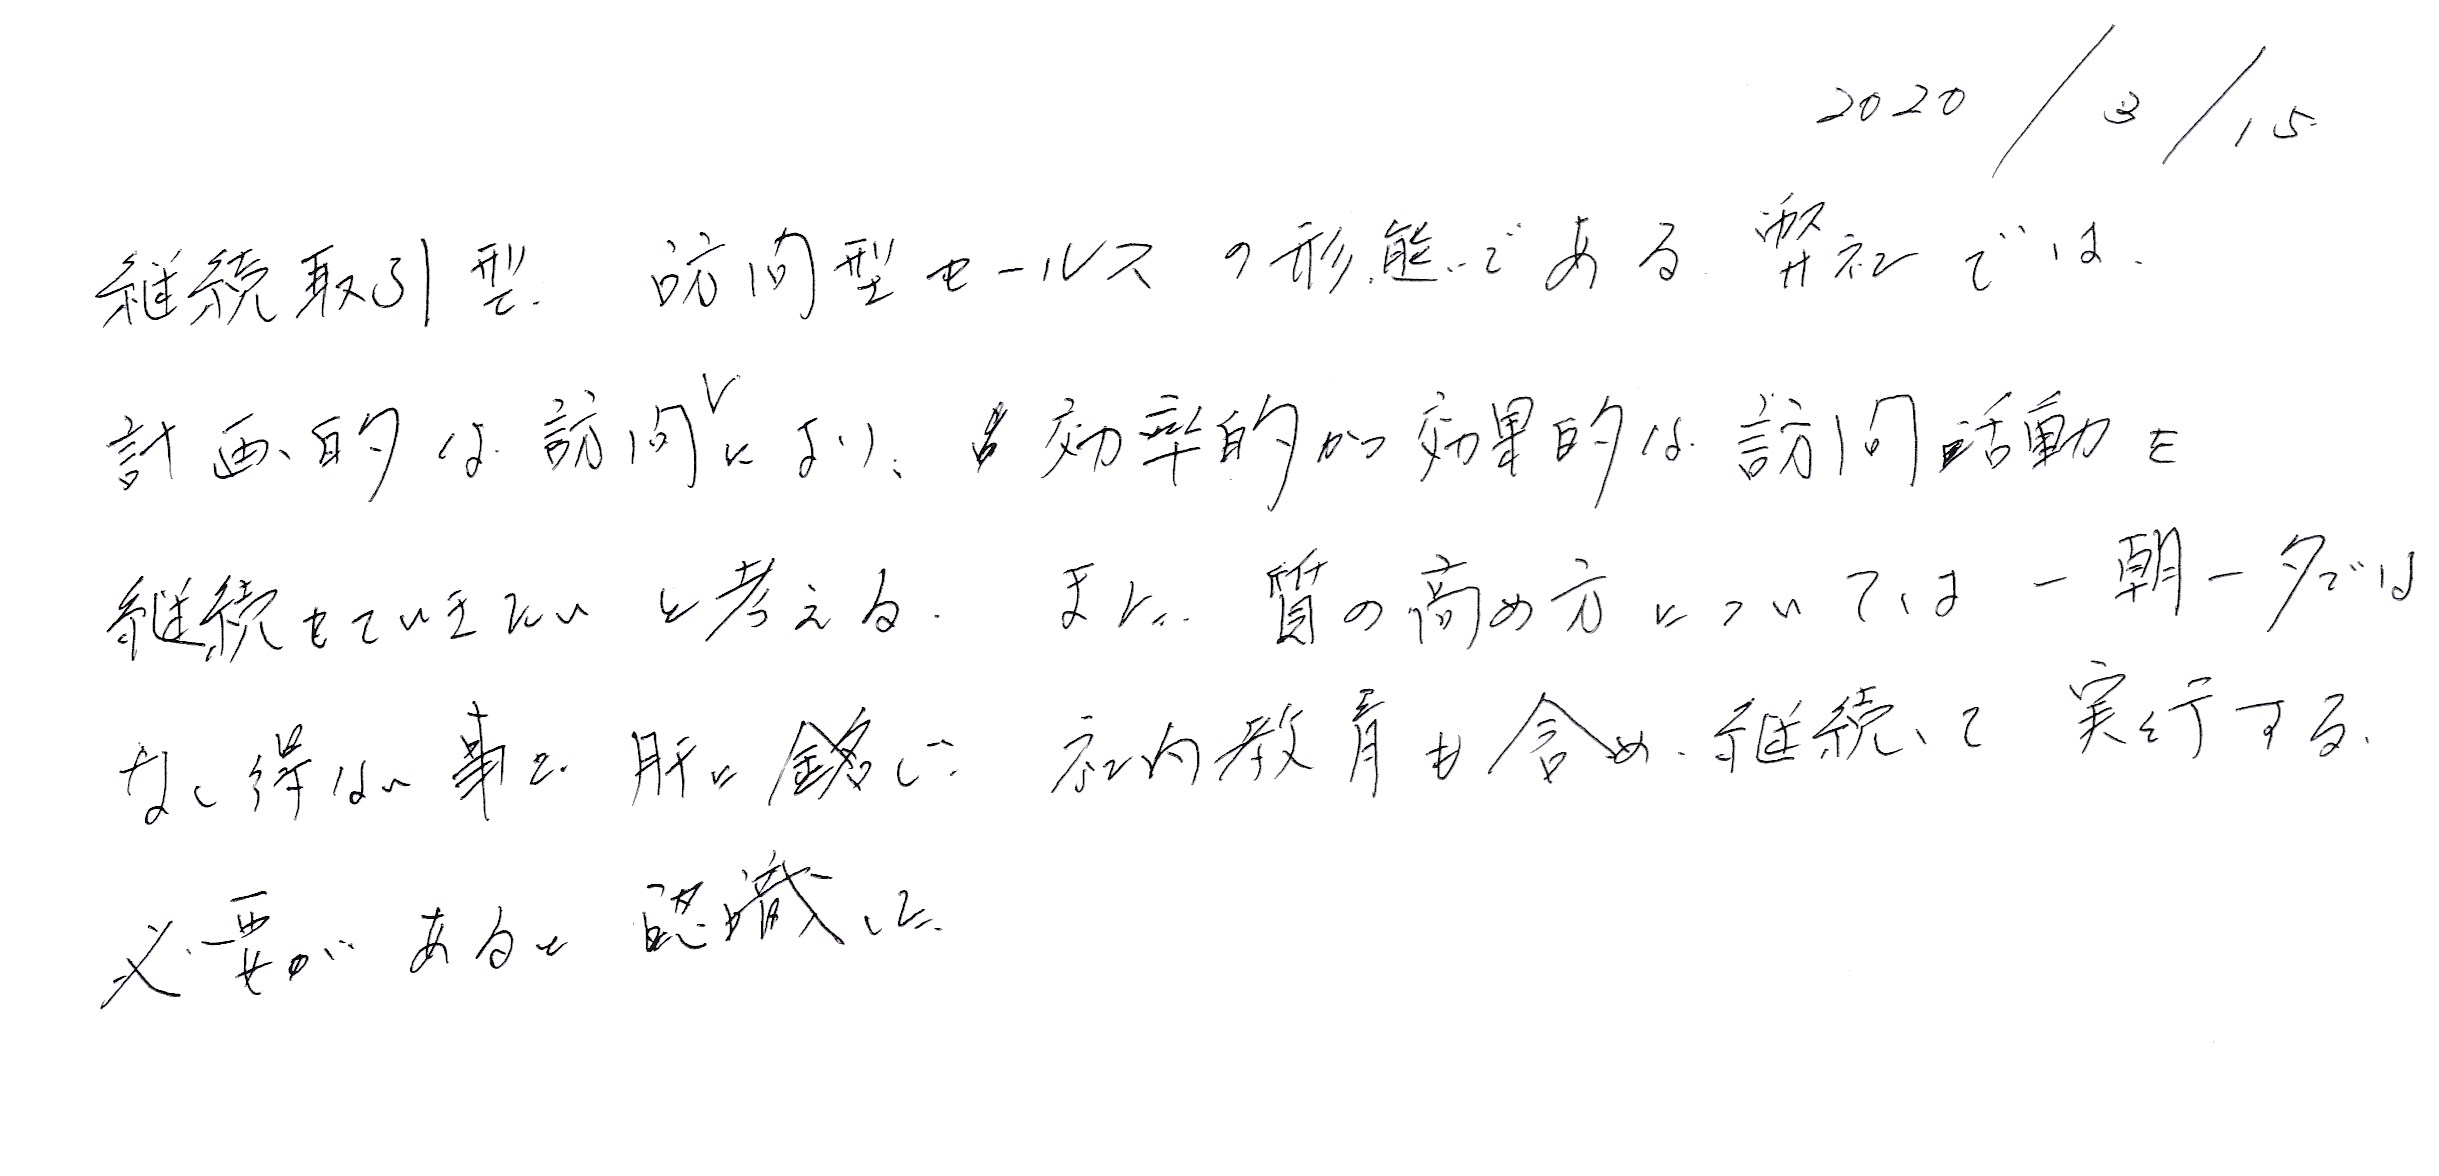 2020/3/15
継続取引型、訪問型セールスの形態である弊社では、
計画的な訪問により、効率的かつ効果的な訪問活動を
継続していきたいと考える。また、質の高め方については一朝一夕では
なし得ない事を肝に銘じ、社内教育も含め、継続して実行する
必要があると認識した。